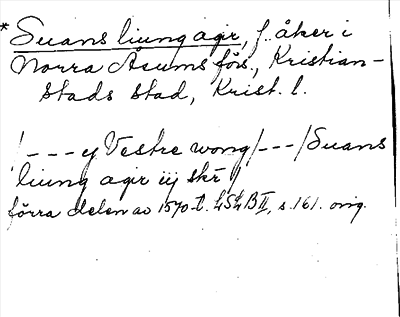 * Suans liung agir, f. åker i
Norra Åsums förs., Kristian-
stads stad, Krist. l.
/--- ej Vestre wong/---/Suans
liung agir iij skr //
förra delen av 1570-t. LSkB II, s. 161. orig.